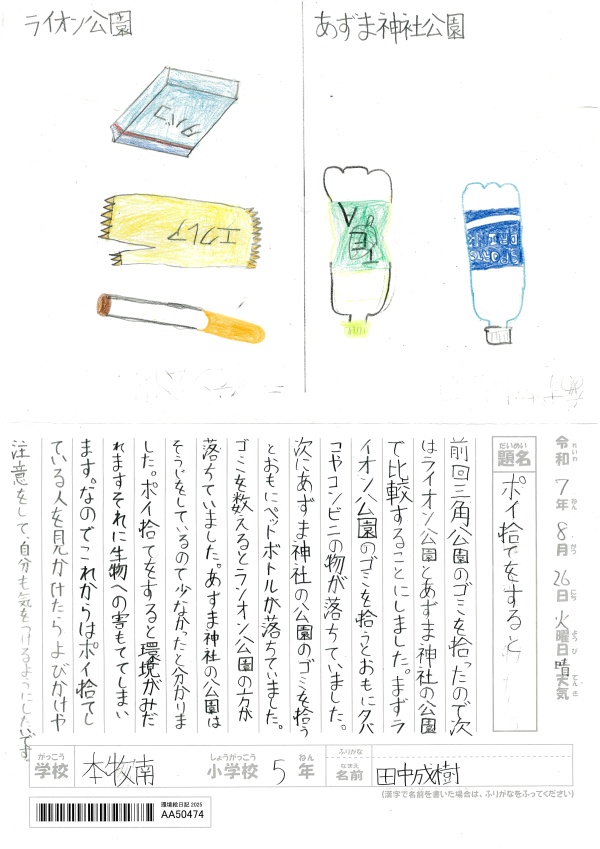 ライオン公園
あずま神社公園
タバコ
エクレア
TEA
SPORTS
DRINK
令和7年8月26日火曜日晴天気
れいわ
ねん
がつ
にち
ようび
てんき
だいめい
題名
ポイ捨てをすると
前回三角公園のゴミを拾ったので次
はライオン公園とあずま神社の公園
で比較することにしました。まずラ
イオン公園のゴミを拾うとおもにタバ
コやコンビニの物が落ちていました。
次にあずま神社の公園のゴミを拾う
とおもにペットボトルが落ちていました。
ゴミを数えるとライオン公園の方が
落ちていました。あずま神社の公園は
そうじをしているので少なかったと分かりま
した。ポイ捨てをすると環境がみだ
れますそれに生物への害もててしまい
ます。なのでこれからはポイ捨てし
ている人を見かけたらよびかけや
注意をして、自分も気をつけるようにしたいです
がっこう
学校
本牧南
しょうがっこう
小学校
5
ねん
年
ふりがな
なまえ
名前
田中成樹
(漢字で名前を書いた場合は、ふりがなをふってください)
環境絵日記 2025
AA50474